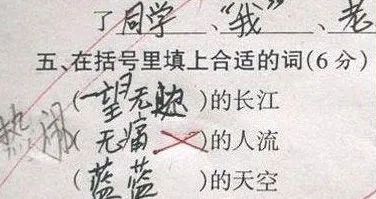 了同学、“我”、老
五、在括号里填上合适的词(6分)
(一望无)的长江
热闹
(无痛)的人流
(蓝蓝)的天空